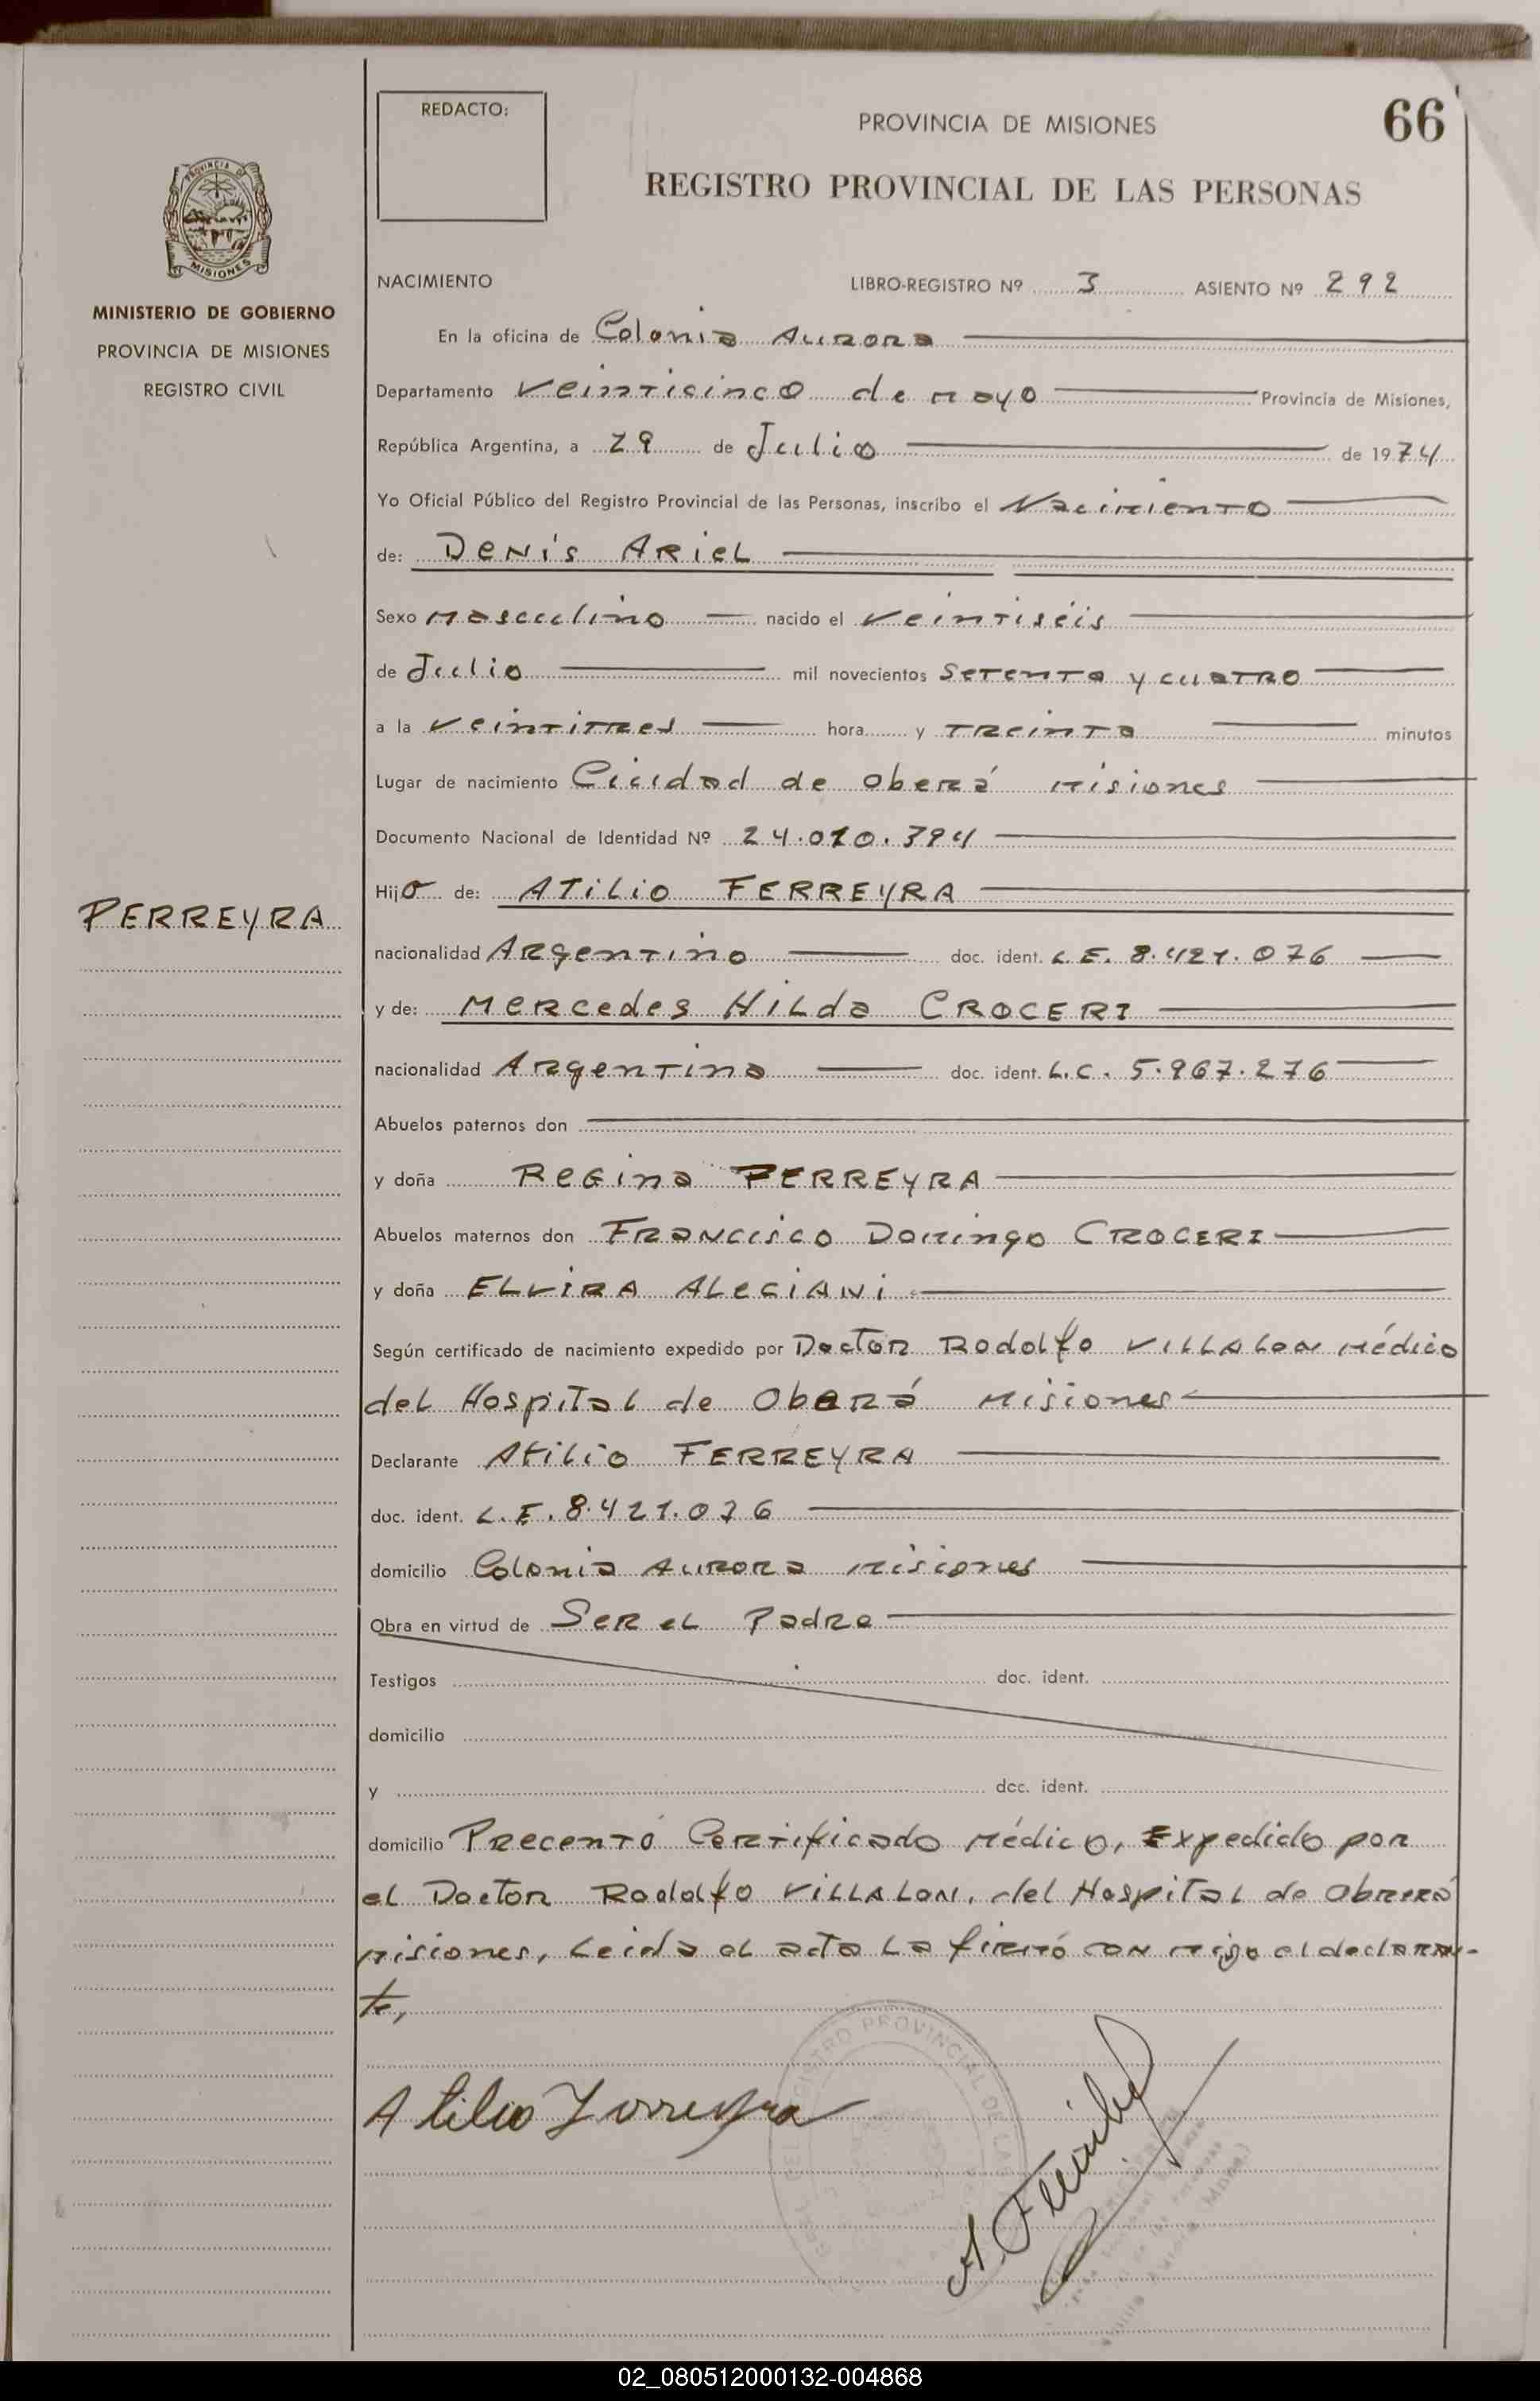 REDACTO:
PROVINCIA DE MISIONES
66
REGISTRO PROVINCIAL DE LAS PERSONAS
PROVINCIA DE
MISIONES
MINISTERIO DE GOBIERNO
PROVINCIA DE MISIONES
REGISTRO CIVIL
NACIMIENTO LIBRO-REGISTRO Nº 3 ASIENTO Nº 292
En la oficina de Colonia Aurora
Departamento Veinticinco de Mayo Provincia de Misiones,
República Argentina, a 29 de Julio de 1974
Yo Oficial Público del Registro Provincial de las Personas, inscribo el Nacimiento
de: DENÍS ARIEL
Sexo Masculino nacido el Veintiséis
de Julio mil novecientos Setenta y cuatro
a la Veintitres hora y Treinta minutos
Lugar de nacimiento Ciudad de Oberá Misiones
Documento Nacional de Identidad Nº 24.010.394
Hijo de: ATILIO FERREYRA
FERREYRA
nacionalidad Argentino doc. ident. L.E. 8.421.076
y de: Mercedes Hilda CROCERI
nacionalidad Argentina doc. ident. L.C. 5.967.276
Abuelos paternos don
y doña Regina FERREYRA
Abuelos maternos don Francisco Domingo CROCERI
y doña ELVIRA ALECIANI
Según certificado de nacimiento expedido por Doctor Rodolfo VILLALON Médico
del Hospital de Oberá Misiones
Declarante Atilio FERREYRA
doc. ident. L.E. 8.421.076
domicilio Colonia Aurora Misiones
Obra en virtud de Ser el Padre
Testigos doc. ident.
domicilio
y doc. ident.
domicilio Precentó Certificado Médico, Expedido por
el Doctor Rodolfo VILLALON, del Hospital de Obrerá
Misiones, Leida el acta La firmó con migo el declaran-
te,
REGISTRO PROVINCIAL DE LAS
Atilio Ferreyra
02_080512000132-004868